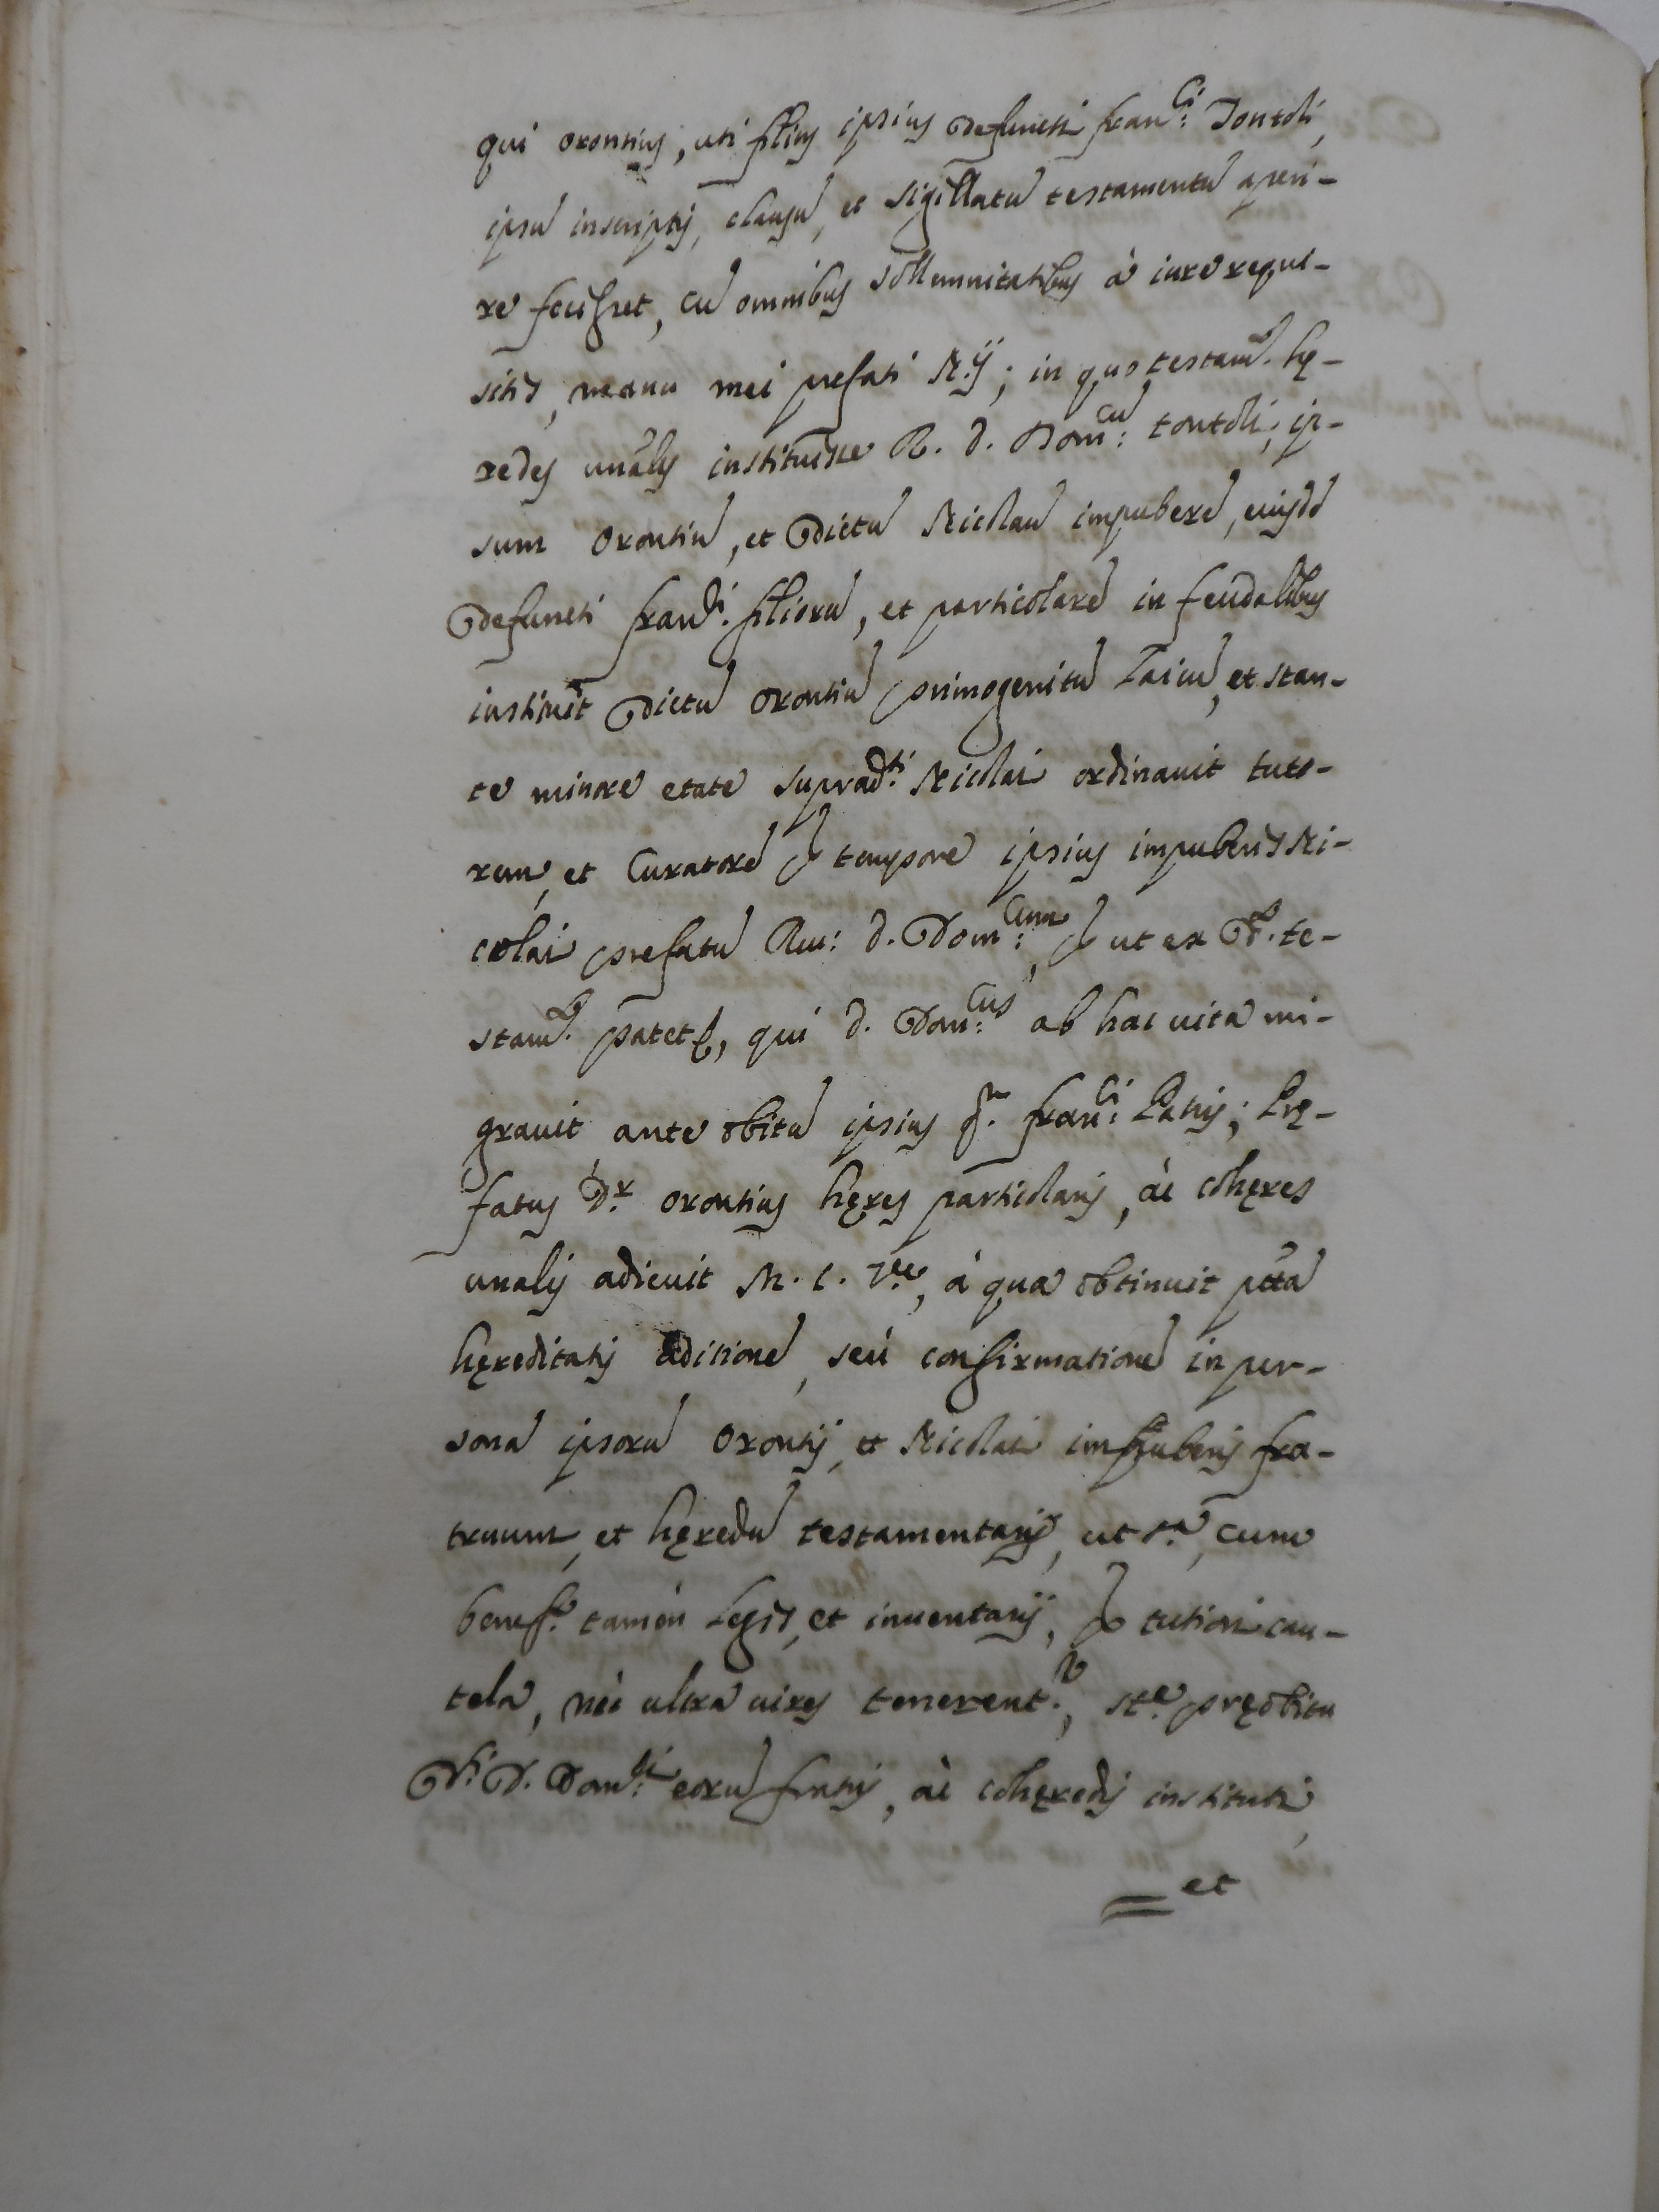 qui Orontius, uti filius ipsius defuncti Fran:ci Tontoli,
ipsũ inscriptis, clausũ, et sigillatũ testamentũ aperi-
re fecisset, cũ omnibus sollemnitatibus à iure requi-
sitis, manu mei prefati N.ij; in quo testam.to hę-
redes unãles instituisse R. d. Dom:cũ tontoli, ip-
sum Orontiũ, et dictũ Nicolaũ impuberẽ, eiusdẽ
defuncti Fran.ci filiorũ, et particolarẽ in feudalibus
instituit dictũ Orontiũ primogenitũ Laicũ, et stan-
te minore etate suprad.ti Nicolai ordinavit tuto-
rem, et Curatorẽ p tempore ipsius impuberis Ni-
colai prefatũ Reu: d. Dom:cum, p ut ex d.o te-
stam.to patet, qui d. Dom:cus ab hac vita mi-
gravit ante obitũ ipsius q.m Fran:ci Patris; Prę-
fatus D.r Orontius hęres particolaris, ac cohęres
unalis adivit M. C. V.e, à qua obtinuit pttã
hęreditatis aditionẽ, seù confirmationẽ in per-
sonã ipsorũ Orontij, et Nicolai impuberis fra-
truum, et hęredũ testamentarij, ut s.a, cum
benef.o tamen Legis, et inventarij, p tutiori cau-
tela, nèc ultra vires tenerent.r, st.e pręobitu
d.i D. Dom:ci eorũ fratris, ac cohęredis instituti,
et